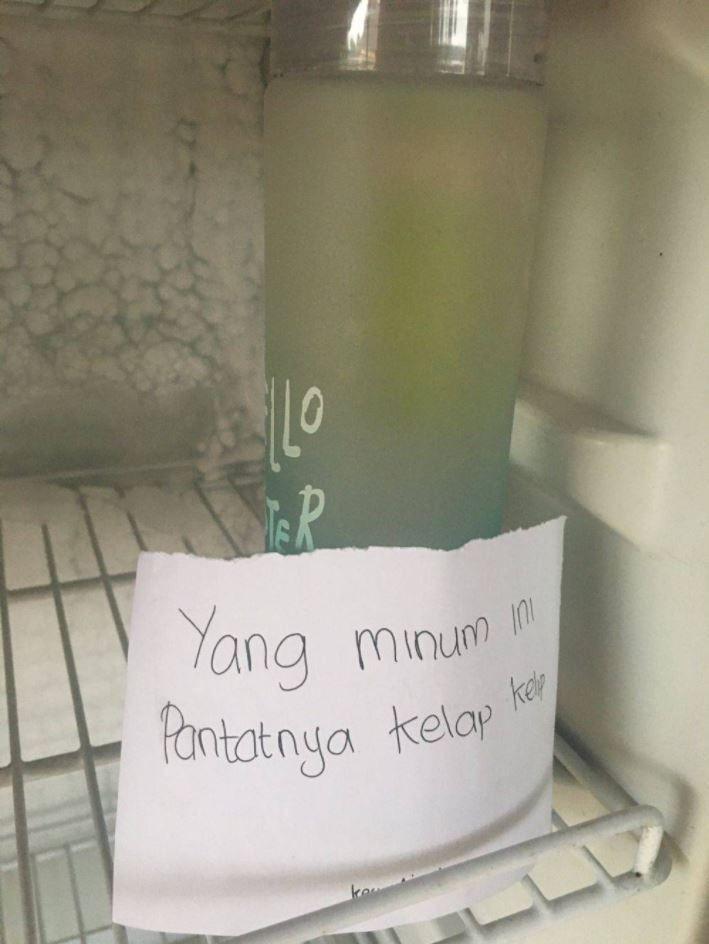 LLO
TER
Yang minum ini
Pantatnya kelap kelip